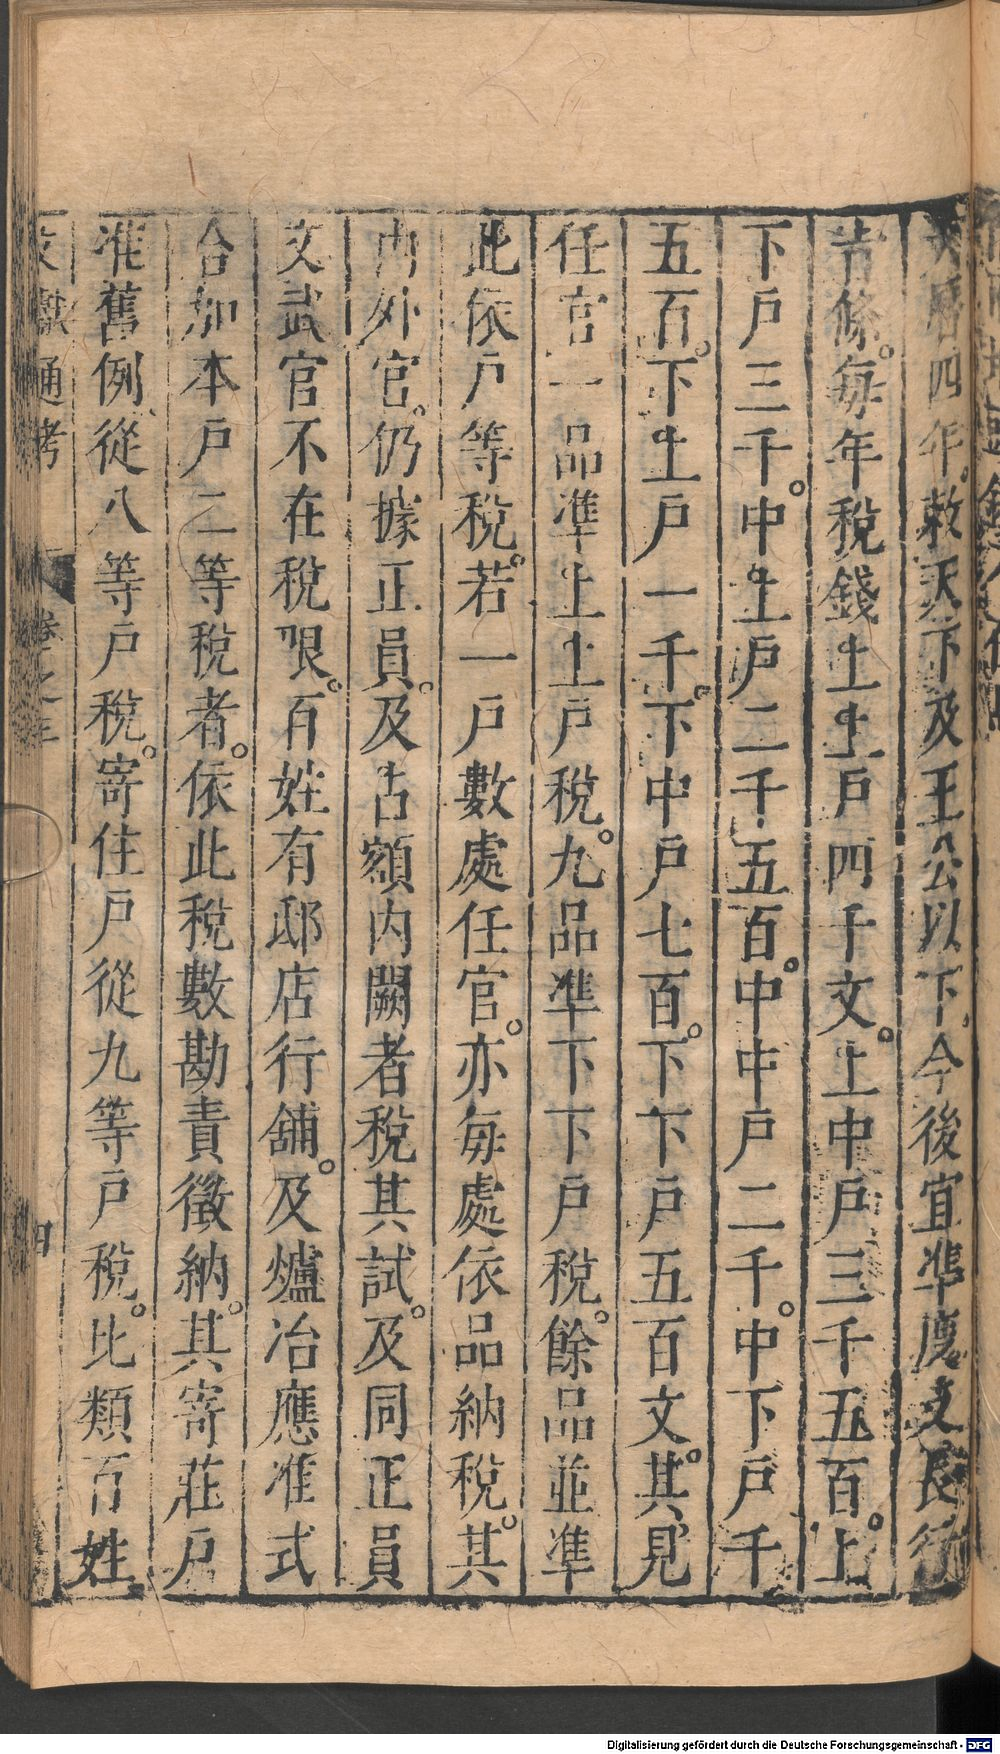 大曆四年。敕天下及王公以下。今後宜準度支長行
旨條。每年稅錢上上戶四千文。上中戶三千五百。上
下戶三千。中上戶二千五百。中中戶二千。中下戶千
五百。下上戶一千。下中戶七百。下下戶五百文。其見
任官一品準上上戶稅。九品準下下戶稅。餘品並準
此依戶等稅。若一戶數處任官。亦每處依品納稅。其
內外官。仍據正員。及占額內闕者稅其試。及同正員
文武官不在稅限。百姓有邸店行舖。及爐冶應准式
合加本戶二等稅者。依此稅數勘責徵納。其寄莊戶
准舊例從八等戶稅。寄住戶從九等戶稅。比類百姓
文獻通考 卷之三 四
Digitalisierung gefördert durch die Deutsche Forschungsgemeinschaft - DFG